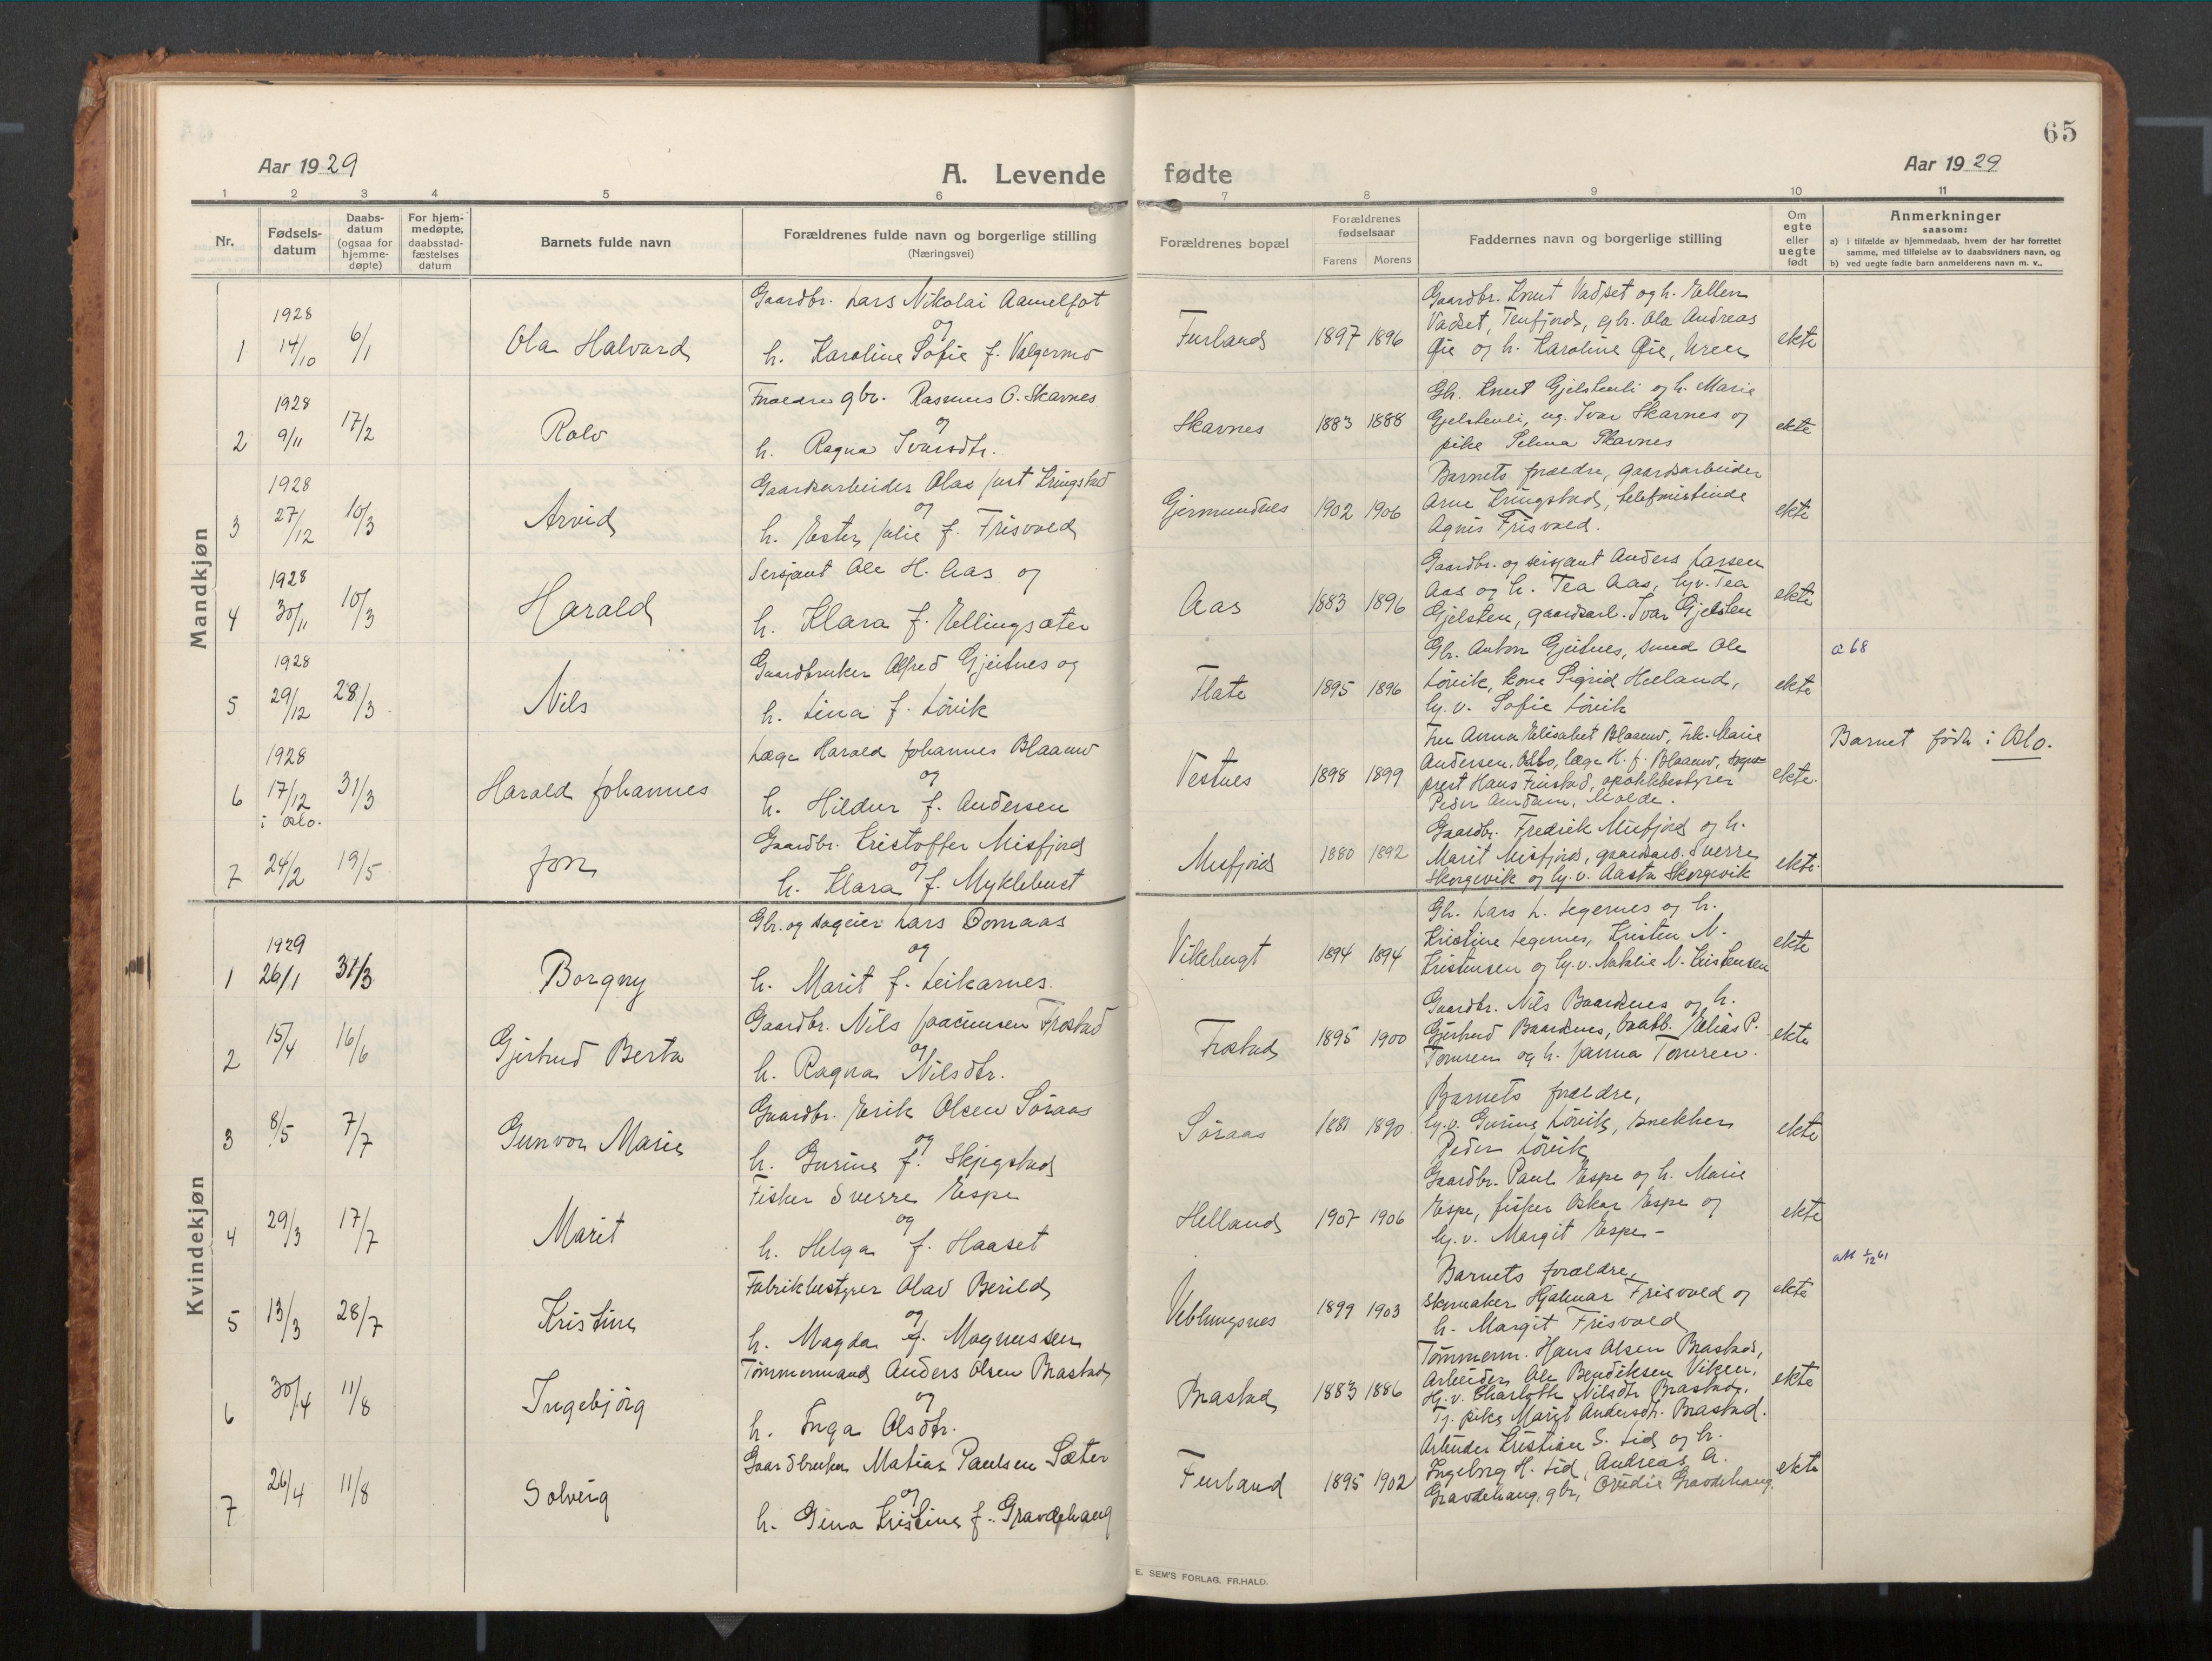 65
Aar 1929
A. Levende fødte
Aar 1929
1 2 3 4 5 6 7 8 9 10 11
Nr.
Fødsels-
datum
Daabs-
datum
(ogsaa for
hjemme-
døpte)
For hjem-
medøpte,
daabsstad-
fæstelses
datum
Barnets fulde navn
Forældrenes fulde navn og borgerlige stilling
(Næringsvei)
Forældrenes bopæl
Forældrenes
fødselsaar
Farens Morens
Faddernes navn og borgerlige stilling
Om
egte
eller
uegte
født
Anmerkninger
saasom:
a) i tilfælde av hjemmedaab, hvem der har forrettet
samme, med tilføielse av to daabsvidners navn, og
b) ved uegte fødte barn anmelderens navn m. v..
Mandkjøn
1
1928
14/10
6/1
Ola Halvard
Gaardbr. Lars Nikolai Aamelfot
og
h. Karoline Sofie f. Valgermo
Furland
1897 1896
Gaardbr. Knut Vadset og h. Ellen
Vadset, Tenfjord, gbr. Ola Andreas
Øie og h. Karoline Øie,
ekte
2
1928
9/11
17/2
Rolv
Foreldre gbr. Rasmus O. Skavnes
og
h. Ragna Ivarsdtr.
Skavnes
1883 1888
Gbr. Knut Gjelstenli og h. Marie
Gjelstenli, ug. Ivar Skarnes og
pike Selma Skavnes
ekte
3
1928
27/12
10/3
Arvid
Gaardsarbeider Olas Just Kringstad
og
h. Ester Julie f. Frisvold
Gjermundnes
1902 1906
Barnets forældre, gaardsarbeider
Arne Kringstad, telefonistinde
Agnis Frisvold.
ekte
4
1928
30/11
10/3
Harald
Sersjant Ole H. Aas og
h. Klara f. Ellingsæter
Aas
1883 1896
Gaardbr. og sersjant Anders Larsen
Aas og h. Tea Aas, hv. Tea
Gjelsten, gaardsarb. Ivar Gjelsten
ekte
5
1928
29/12
28/3
Nils
Gaardbruker Alfred Gjeitnes og
h. Lina f. Lövik
Flate
1895 1896
Gbr. Anton Gjeitnes, smed Ole
Lövik, kone Sigrid Heeland,
hj. v. Sofie Lövik
ekte
a 68
6
1928
17/12
i Oslo.
31/3
Harald Johannes
Læge Harald Johannes Blaauw
og
h. Hildur f. Andersen
Vestnes
1898 1899
Fru Anna Elisabet Blaauw, frk. Marie
Andersen, Oslo, læge H. J. Blaauw, sogne-
prest Hans Finstad, apotekbestyrer
Peder Aurdam, Molde.
ekte.
Barnet född i Oslo.
7
24/2
19/5
Jon
Gaardbr. Kristoffer Misfjord
og
h. Klara f. Myklebust
Misfjord
1880 1892
Gaardbr. Fredrik Misfjord og h.
Marit Misfjord, gaardsarb. Sverre
Skorgevik og hj. v. Aasta Skorgevik
ekte
Kvindekjøn
1
1929
26/1
31/3
Borgny
Gbr. og sageier Lars Domaas
og
h. Marit f. Leikarnes.
Vikebugt
1894 1894
Gbr. Lars L. Legernes og h.
Kristine Legernes, Kristen N.
Kristensen og hj. v. Natalie N. Kristensen
ekte
2
15/4
16/6
Gjertrud Berta
Gaardbr. Nils Joacimsen Frostad
og
h. Ragna Nilsdtr.
Frostad
1895 1900
Gaardbr. Nils Baardsnes og h.
Gjertrud Baardsnes, baatb. Elias P.
Tomren og h. Janna Tomren.
ekte
3
8/5
7/7
Gunvor Marie
Gaardbr. Erik Olsen Söraas
og
h. Gurine f. Skjegstad
Söraas
1881 1890
Barnets forældre,
hj. v. Gurine Lövik, snekker
Peder Lövik
ekte
4
29/3
17/7
Marit
Fisker Sverre Espe
og
h. Helga f. Haaset
Helland
1907 1906
Gaardbr. Paul Espe og h. Marie
Espe, fisker Oskar Espe og
hj. v. Margit Espe -
ekte
5
13/3
28/7
Kristine
Fabrikbestyrer Olav Berild
og
h. Magda f. Magnussen
Veblungsnes
1899 1903
Barnets forældre,
skomaker Hjalmar Frisvold og
h. Margit Frisvold
ekte
att 1/12 61
6
30/4
11/8
Ingebjörg
Tömmermand Anders Olsen Brastad
og
h. Inga Olsdtr.
Brastad
1883 1886
Tömmerm. Hans Olsen Brastad,
Arbeider Ole Bendiksen Viken,
Hj. v. Charlotte Nilsdtr Brastad,
Tj. pike Marit Andersdtr. Brastad.
ekte
7
26/4
11/8
Solveig
Gaardbruker Matias Paulsen Sæter
og
h. Gina Kristine f. Gravdehaug
Furland
1895 1902
Arbeider Kristian S. Lid og h.
Ingeborg H. Lid, Andreas A.
Gravdehaug, gbr, Ovedie Gravdehaug.
ekte
E. SEM'S FORLAG, FR.HALD.